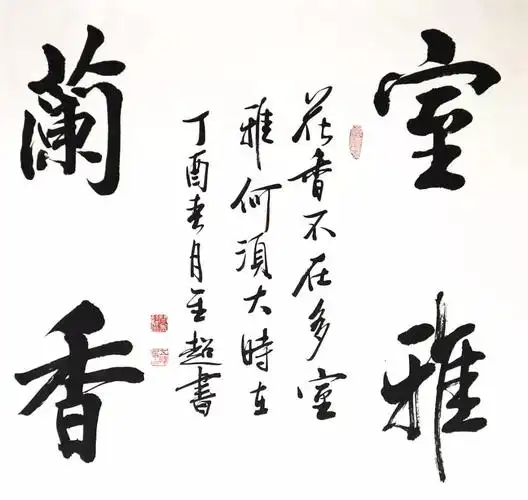 室雅
花香不在多室
雅何須大時在
丁酉春月王超書
蘭香